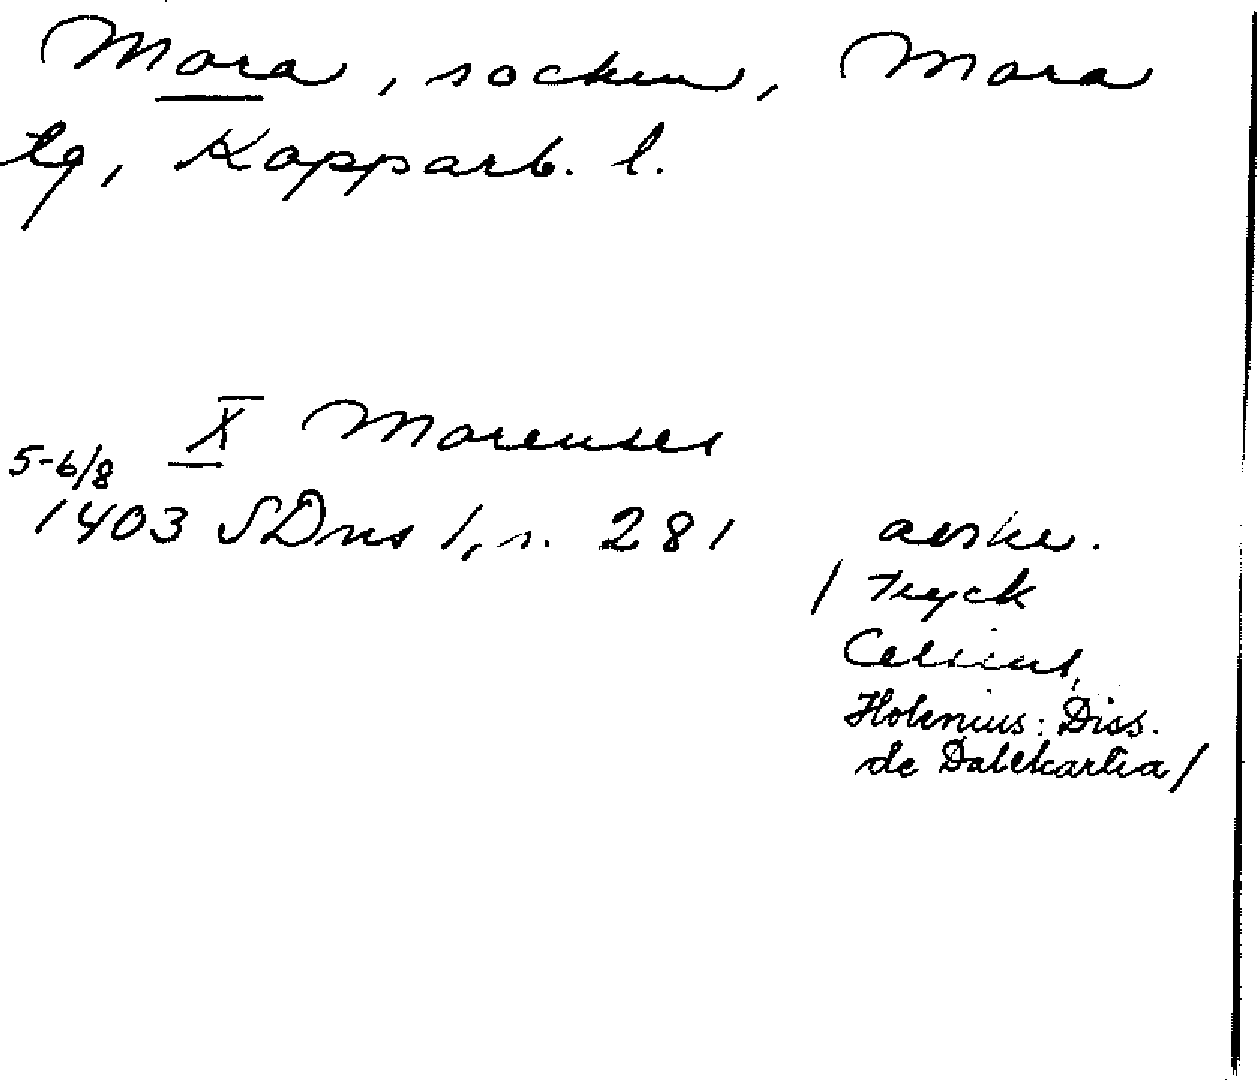 Mora, socken, Mora
tg, Kopparb. l.
X Morenses
5-6/8
1403 SDns 1, s. 281 avskr.
/ Tryck
Celsius,
Holenius: Diss.
de Dalekarlia/